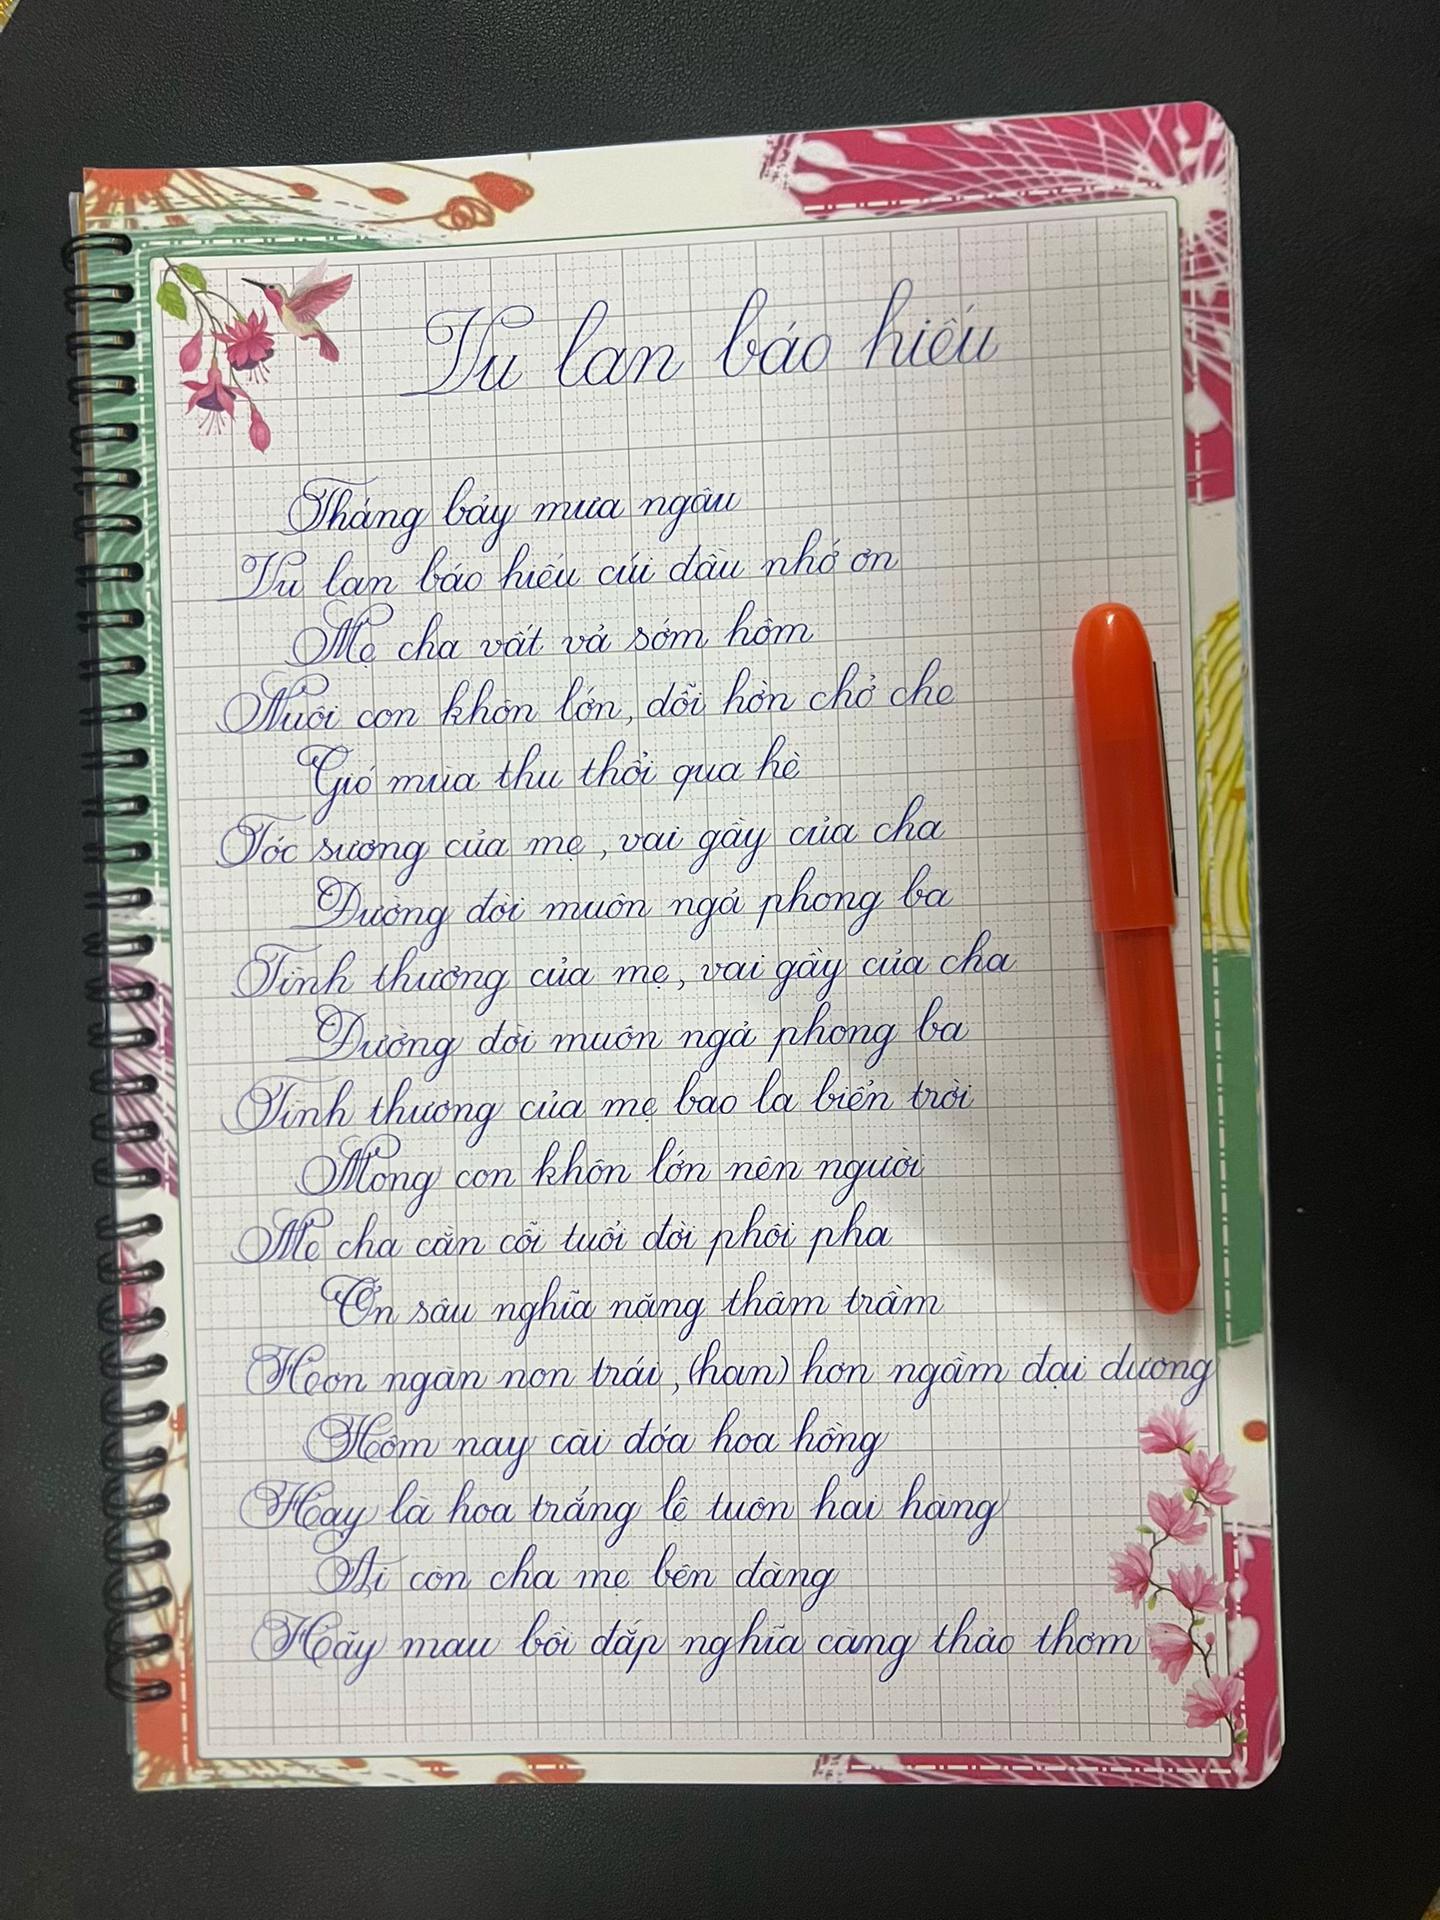 Vu lan báo hiếu
Tháng bảy mưa ngâu
Vu lan báo hiếu cúi đầu nhớ ơn
Mẹ cha vất vả sớm hôm
Nuôi con khôn lớn, dỗi hờn chở che
Gió mùa thu thổi qua hè
Tóc sương của mẹ, vai gầy của cha
Đường đời muôn ngả phong ba
Tình thương của mẹ, vai gầy của cha
Đường đời muôn ngả phong ba
Tình thương của mẹ bao la biển trời
Mong con khôn lớn nên người
Mẹ cha cằn cỗi tuổi đời phôi pha
Ơn sâu nghĩa nặng thâm trầm
Hơn ngàn non trái, (han) hơn ngầm đại dương
Hôm nay cài đóa hoa hồng
Hay là hoa trắng lệ tuôn hai hàng
Ai còn cha mẹ bên đàng
Hãy mau bồi đắp nghĩa càng thảo thơm